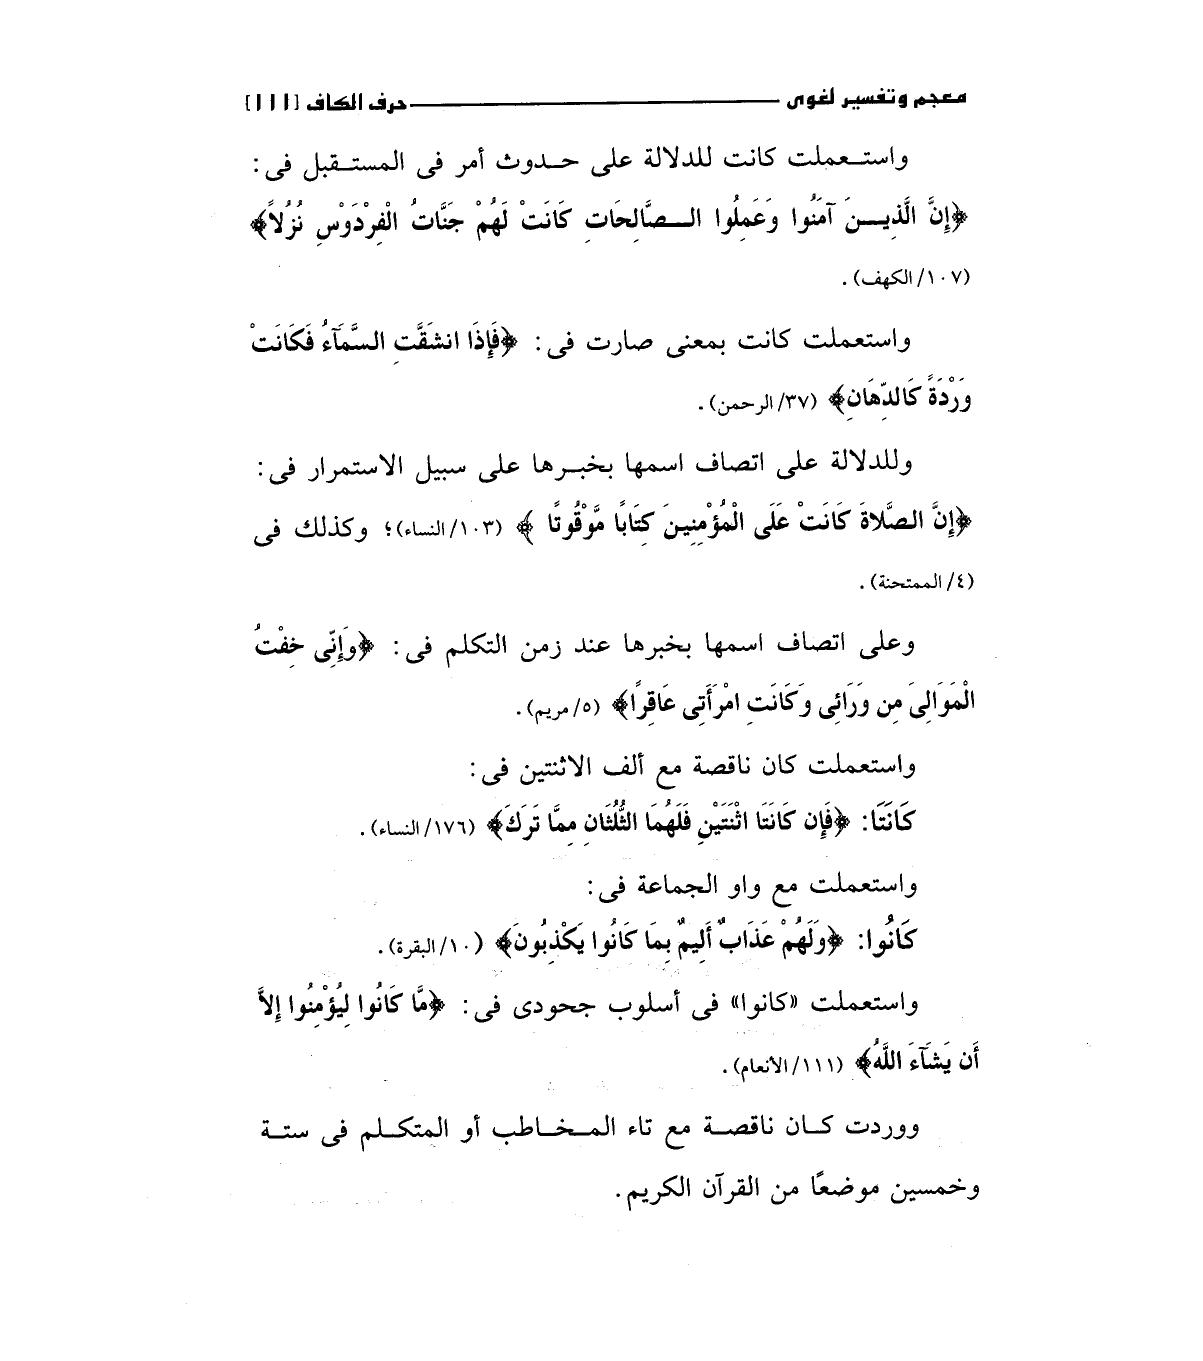 معجم وتفسير لغوى حرف الكاف [١١١]
واستعملت كانت للدلالة على حدوث أمر فى المستقبل فى:
﴿إِنَّ الَّذِينَ آمَنُوا وَعَمِلُوا الصَّالِحَاتِ كَانَتْ لَهُمْ جَنَّاتُ الْفِرْدَوْسِ نُزُلاً﴾
(١٠٧/ الكهف).
واستعملت كانت بمعنى صارت فى: ﴿فَإِذَا انشَقَّتِ السَّمَآءُ فَكَانَتْ
وَرْدَةً كَالدِّهَانِ﴾ (٣٧/ الرحمن).
وللدلالة على اتصاف اسمها بخبرها على سبيل الاستمرار فى:
﴿إِنَّ الصَّلاةَ كَانَتْ عَلَى الْمُؤْمِنِينَ كِتَابًا مَّوْقُوتًا ﴾ (١٠٣/ النساء)؛ وكذلك فى
(٤/ الممتحنة).
وعلى اتصاف اسمها بخبرها عند زمن التكلم فى: ﴿وَإِنِّى خِفْتُ
الْمَوَالِىَ مِن وَرَائِى وَكَانَتِ امْرَأَتِى عَاقِرًا﴾ (٥/ مريم).
واستعملت كان ناقصة مع ألف الاثنتين فى:
كَانَتَا: ﴿فَإِن كَانَتَا اثْنَتَيْنِ فَلَهُمَا الثُّلُثَانِ مِمَّا تَرَكَ﴾ (١٧٦/ النساء).
واستعملت مع واو الجماعة فى:
كَانُوا: ﴿وَلَهُمْ عَذَابٌ أَلِيمٌ بِمَا كَانُوا يَكْذِبُونَ﴾ (١٠/ البقرة).
واستعملت «كانوا» فى أسلوب جحودى فى: ﴿مَّا كَانُوا لِيُؤْمِنُوا إِلاَّ
أَن يَشَآءَ اللَّهُ﴾ (١١١/ الأنعام).
ووردت كان ناقصة مع تاء المخاطب أو المتكلم فى ستة
وخمسين موضعًا من القرآن الكريم.